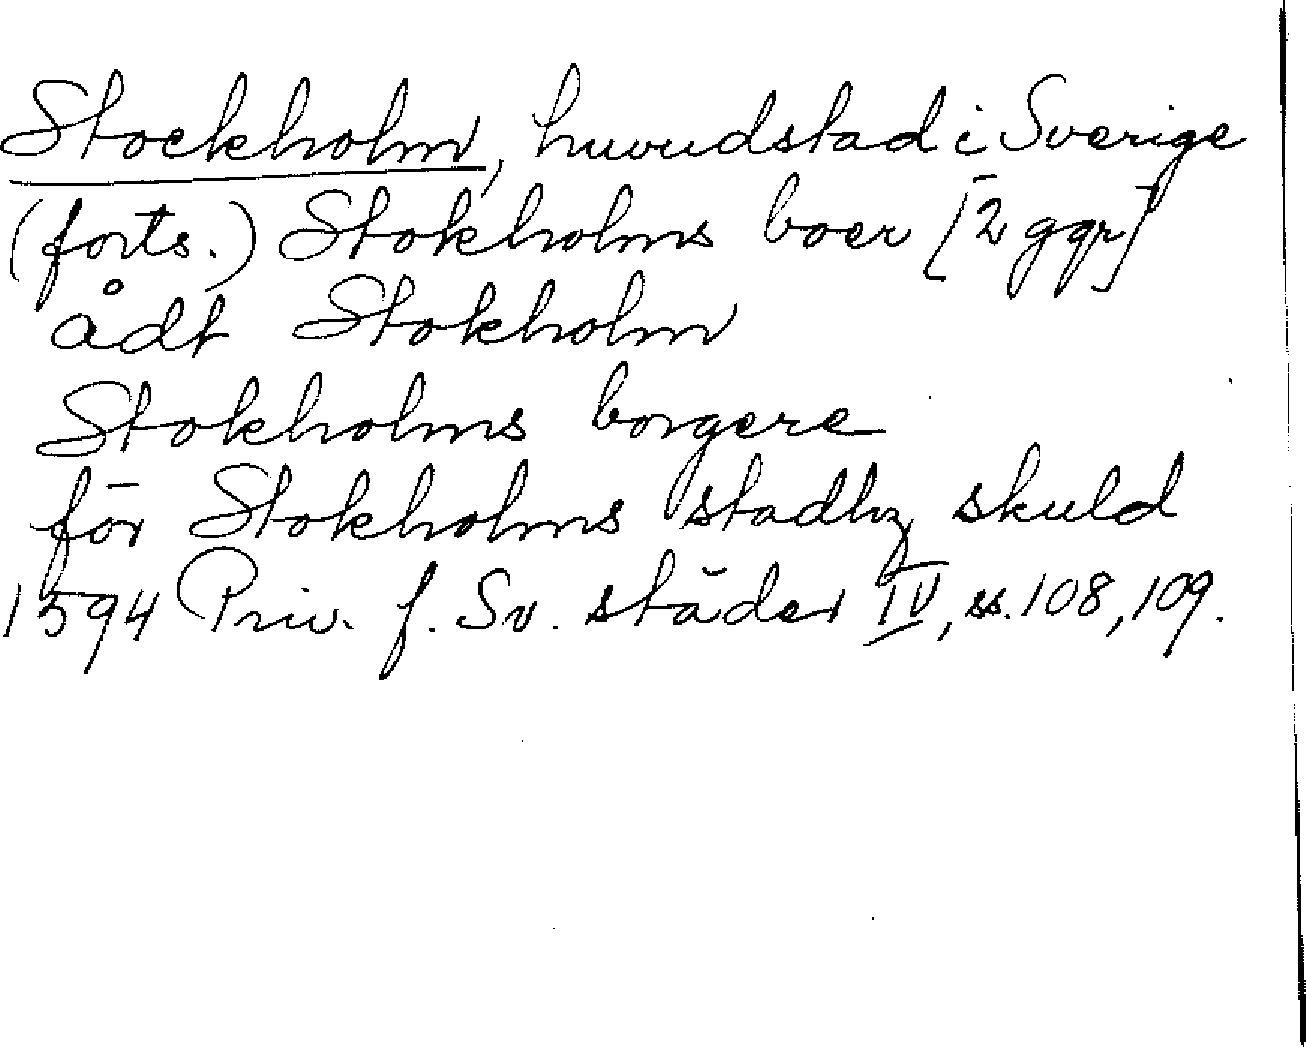 Stockholm, huvudstad i Sverige
(forts.) Stokholms boer [2 ggr]
ådt Stokholm
Stokholms borgere
för Stokholms stadhz skuld
1594 Priv. f. Sv. städer IV, ss. 108, 109.